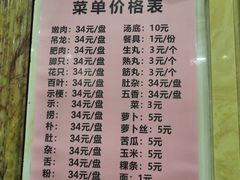 菜单价格表
嫩肉: 34元/盘 汤底: 10元
吊龙: 34元/盘 餐具: 1元/份
肥肉: 34元/盘 生丸: 3元/个
脚只: 34元/盘 熟丸: 3元/个
花只: 34元/盘 筋丸: 3元/个
百叶: 34元/盘 肚杂: 34元/盘
示便: 34元/盘 五香: 34元/盘
示: 34元/盘 菜: 3元
捞: 34元/盘 萝卜: 5元
朴: 34元/盘 萝卜丝: 5元
肚: 34元/盘 苦瓜: 5元
杂: 34元/盘 玉米: 5元
舌: 34元/盘 粿条: 5元
粉: 34元/盘 面: 5元